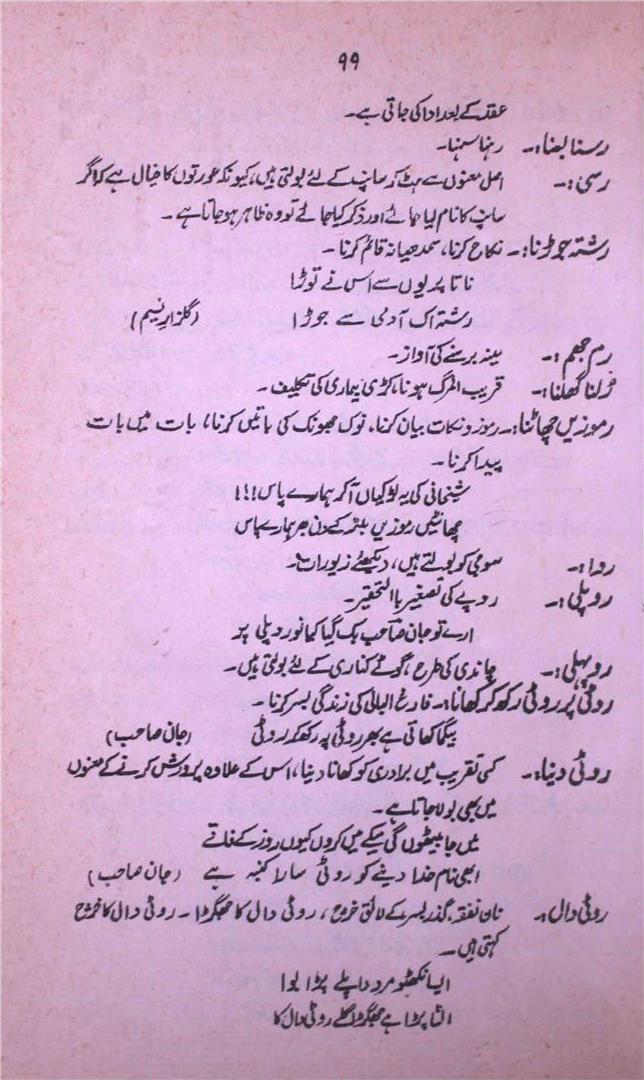 ۹۹
عقد کے بعد ادا کی جاتی ہے۔
رسنا بسنا:۔ رہنا سہنا۔
رسی:۔ اصل معنوں سے ہٹ کر سانپ کے لئے بولتی ہیں، کیونکہ عورتوں کا خیال ہے کہ اگر
سانپ کا نام لیا جائے اور ذکر کیا جائے تو وہ ظاہر ہو جاتا ہے۔
رشتہ جوڑنا:۔ نکاح کرنا، سمدھیانہ قائم کرنا۔
ناتا پریوں سے اس نے توڑا
رشتہ اک آدمی سے جوڑا (گلزار نسیم)
رم جھم:۔ مینہ برسنے کی آواز۔
رُلنا گھلنا:۔ قریب المرگ ہونا، کڑی بیماری کی تکلیف۔
رموزیں چھانٹنا:۔ رموز و نکات بیان کرنا، نوک جھونک کی باتیں کرنا، بات میں بات
پیدا کرنا۔
شیخانی کی یہ لڑکیاں آ کر ہمارے پاس!!!
چھانٹیں رموزیں بیٹھ کے دن بھر ہمارے پاس
روا:۔ سوجی کو بولتے ہیں، دیکھئے زیورات۔
روپلی:۔ روپے کی تصغیر باالتحقیر۔
ارے تو جان صاحب بک گیا کیا نو روپلی پر
روپہلی:۔ چاندی کی طرح، گوٹے کناری کے لئے بولتی ہیں۔
روٹی پر روٹی رکھ کر کھانا:۔ فارغ البالی کی زندگی بسر کرنا۔
بیگما کھاتی ہے بھر روٹی پہ رکھ کر روٹی (جان صاحب)
روٹی دینا:۔ کسی تقریب میں برادری کو کھانا دینا، اس کے علاوہ پرورش کرنے کے معنوں
میں بھی بولا جاتا ہے۔
میں جا بیٹھوں گی میکے میں کروں کیوں روز کے فاقے
ابھی نام خدا دینے کو روٹی سارا کنبہ ہے (جان صاحب)
روٹی دال:۔ نان نفقہ، گذر بسر کے لائق خرچ، روٹی دال کا جھگڑا۔ روٹی دال کا خرچ
کہتی ہیں۔
ایسا نکھٹو مردوا پلے پڑا بوا
الٹا پڑا ہے جھگڑا گلے روٹی دال کا